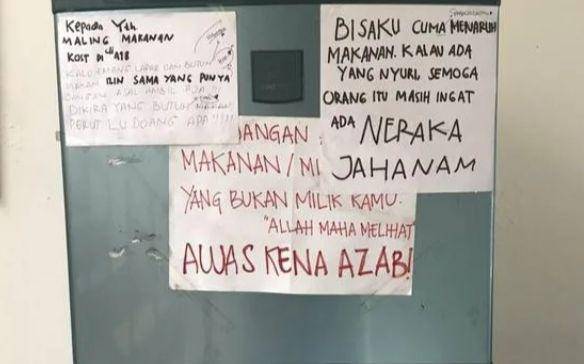 Kepada Yth.
MALING MAKANAN
KOST DI A18
KALO EMANG LAPAR DAN BUTUH
MAKAN IZIN SAMA YANG PUNYA
JANGAN ASAL AMBIL AJA !!!
DIKIRA YANG BUTUH MAKAN
PERUT LU DOANG APA"!!!!
BISAKU CUMA MENARUH
MAKANAN. KALAU ADA
YANG NYURI, SEMOGA
ORANG ITU MASIH INGAT
ADA NERAKA
JAHANAM
JANGAN
MAKANAN / MI
YANG BUKAN MILIK KAMU.
"ALLAH MAHA MELIHAT
AWAS KENA AZAB!